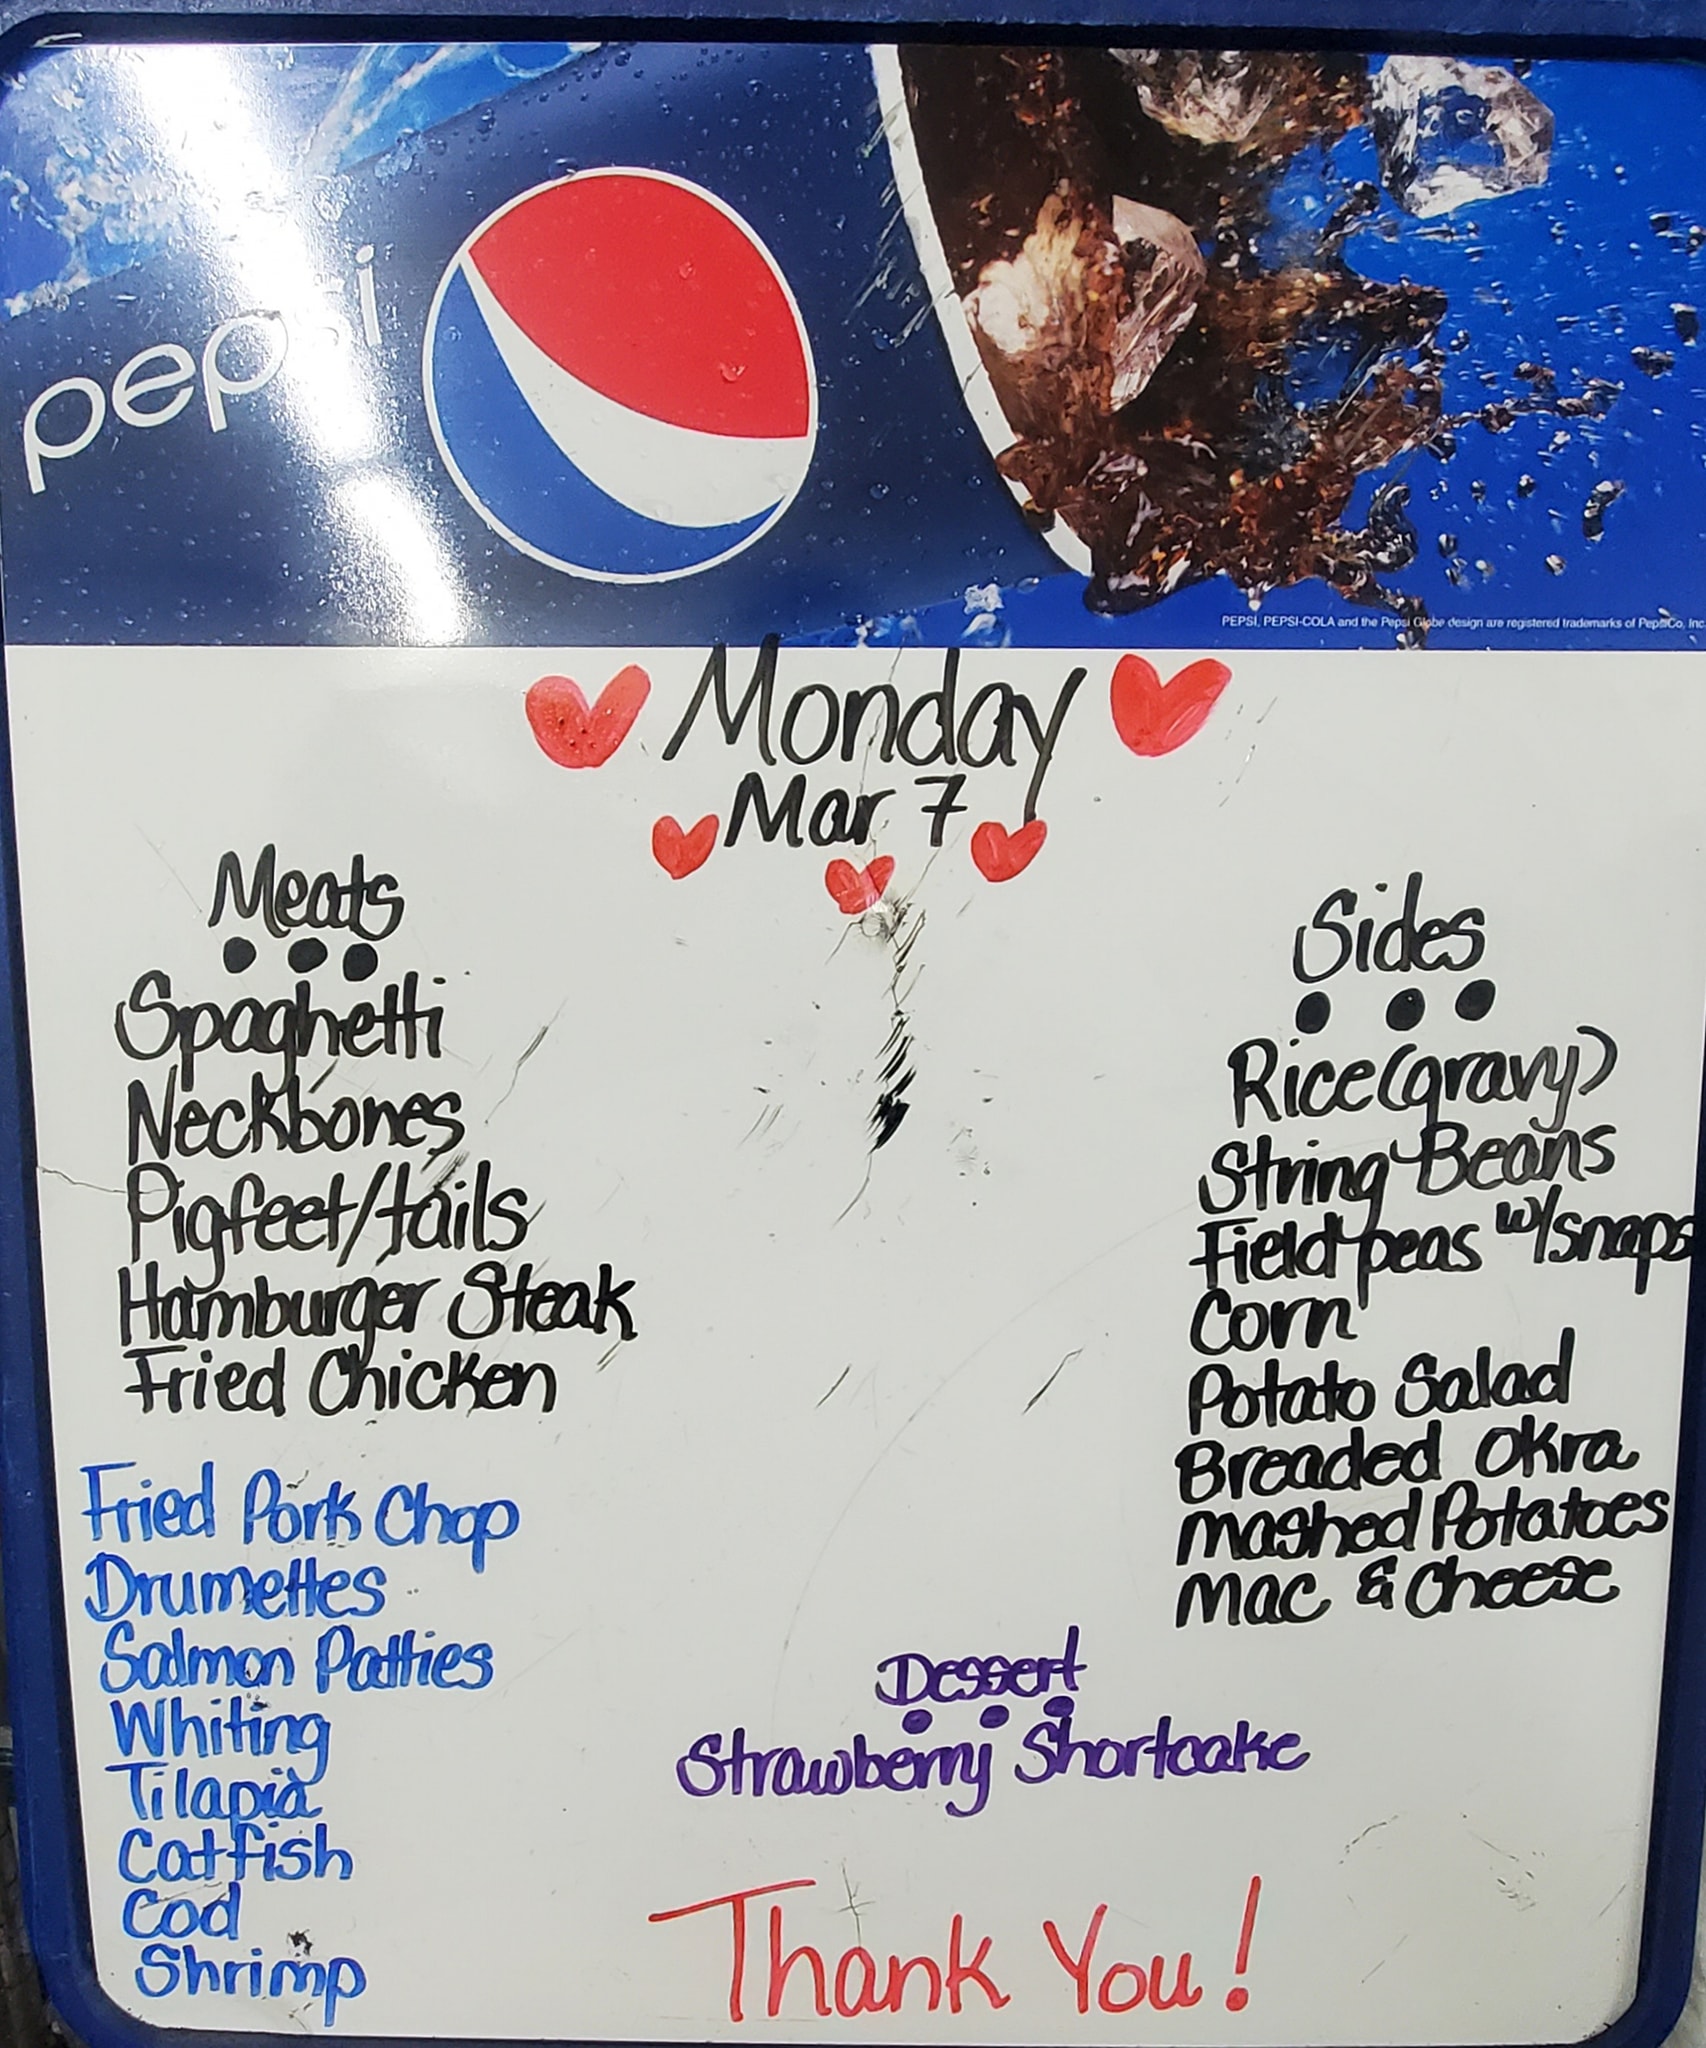 pepsi
PEPSI, PEPSI-COLA and the Pepsi Globe design are registered trademarks of PepsiCo, Inc.
Monday
Mar 7
Meats
Spaghetti
Neckbones
Pigfeet/tails
Hamburger Steak
Fried Chicken
Fried Pork Chop
Drumettes
Salmon Patties
Whiting
Tilapia
Catfish
Cod
Shrimp
Sides
Rice (gravy)
String Beans
Field peas w/snaps
Corn
Potato Salad
Breaded Okra
Mashed Potatoes
Mac & Cheese
Dessert
Strawberry Shortcake
Thank You!